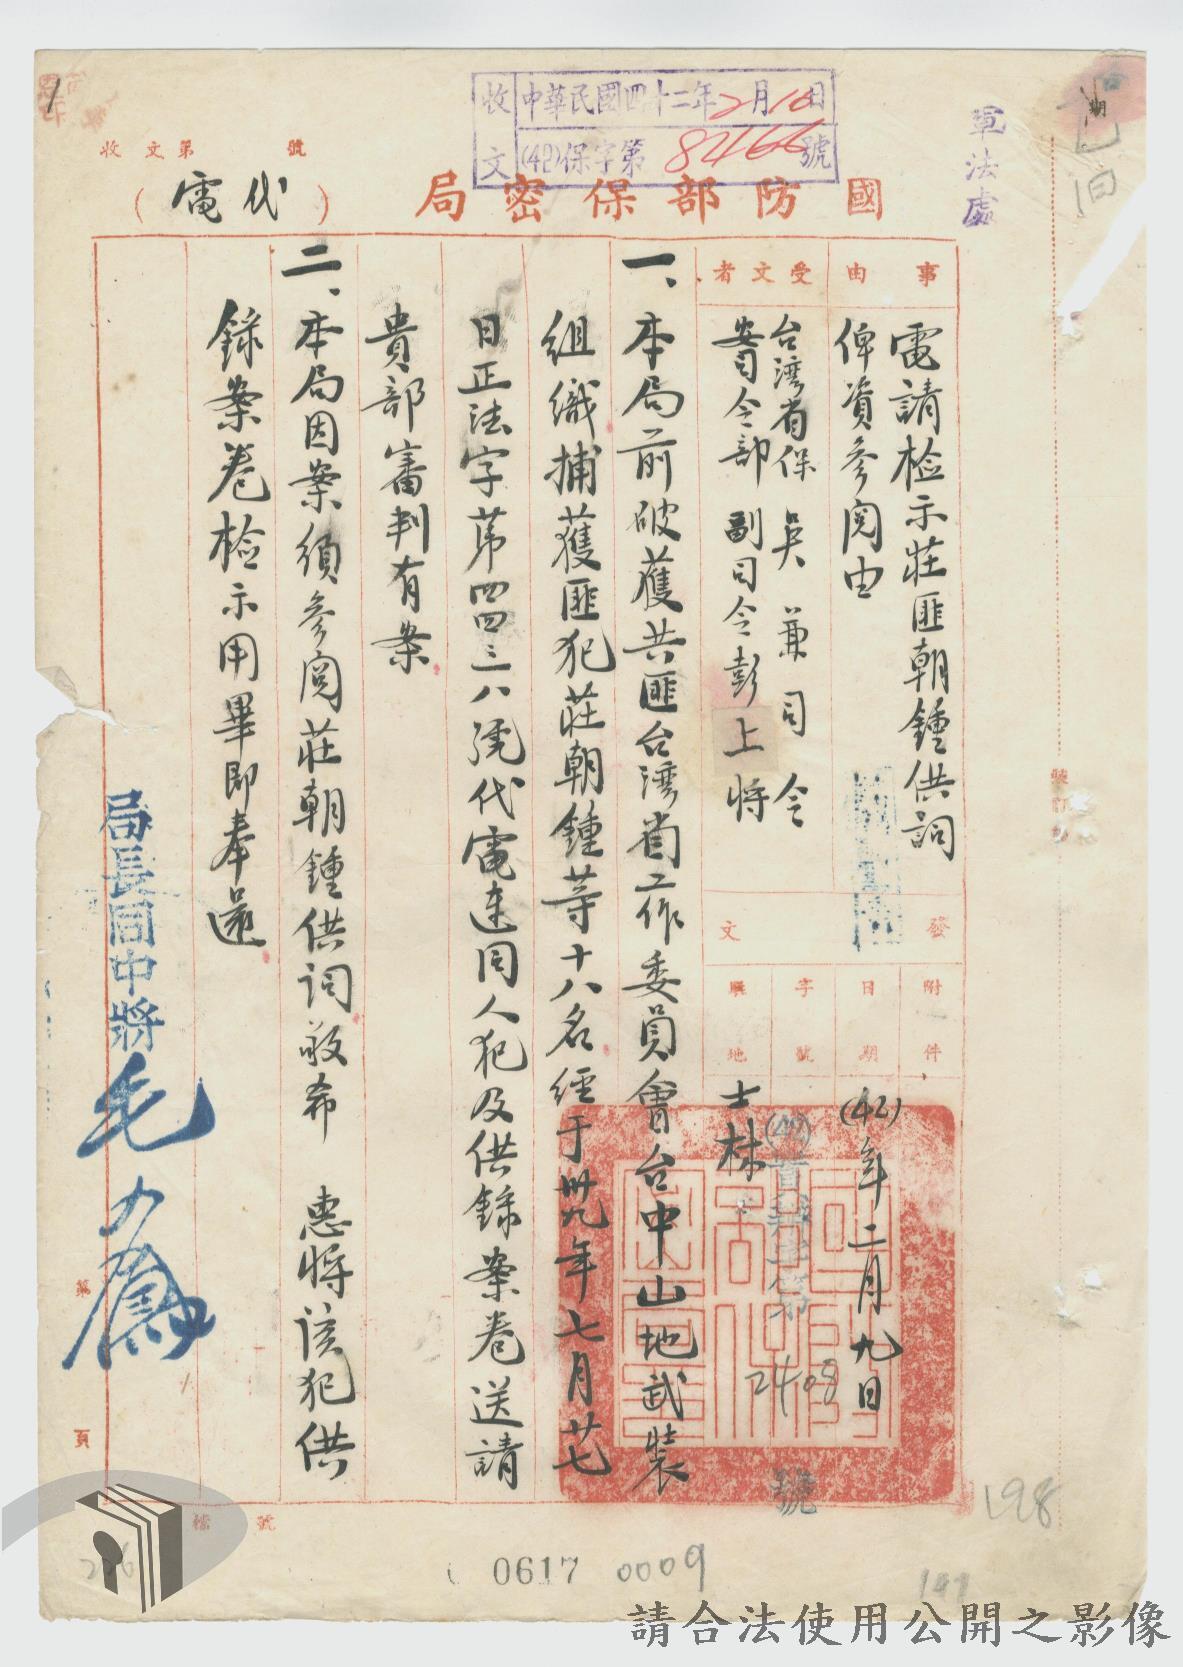 收文 中華民國四十二年2月10日
(42)保字第82466號
軍法處
收文第 號
國防部保密局
(代電)
事由
電請檢示莊匪朝鍾供詞
俾資參閱由
受文者
台灣省保安司令部
吳兼司令
副司令彭上將
發文
附件
日期
(42)年二月九日
字號
字第
2408
號
駐地
士林
一、本局前破獲共匪台灣省工作委員會台中山地武裝
組織捕獲匪犯莊朝鍾等十八名經于卅九年七月廿七
日正法字第四四三八號代電連同人犯及供錄案卷送請
貴部審判有案
二、本局因案須參閱莊朝鍾供詞敬希 惠將該犯供
錄案卷檢示用畢即奉還
局長同中將毛人鳳
第 頁
檔號
198
0617 0009
請合法使用公開之影像